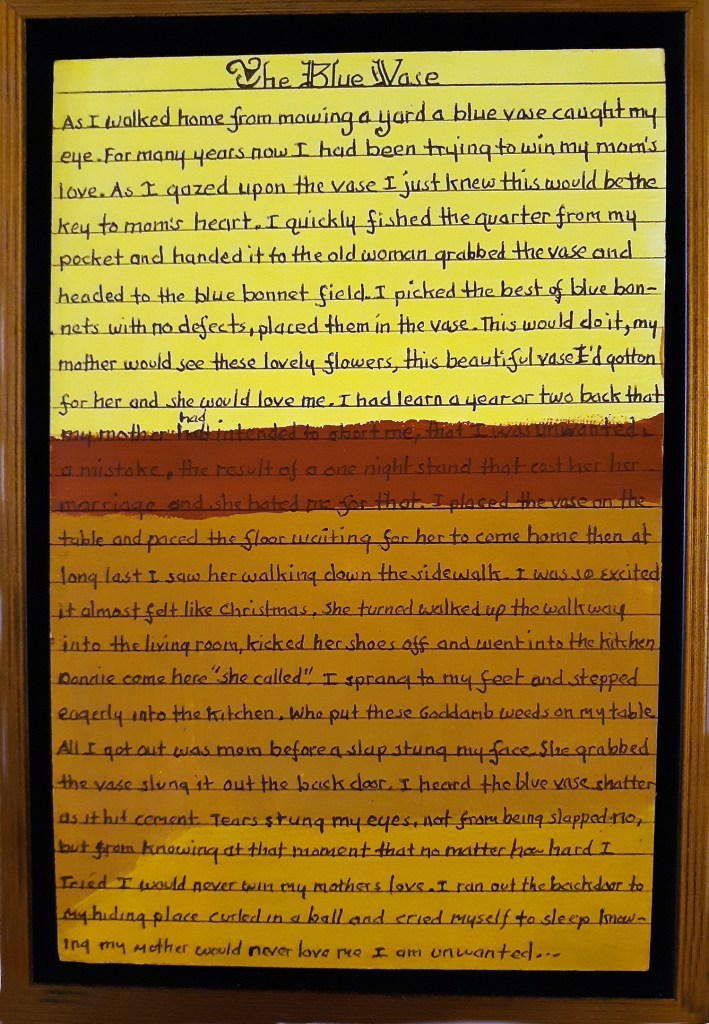 The Blue Vase
As I walked home from mowing a yard a blue vase caught my
eye. For many years now I had been trying to win my mom's
love. As I gazed upon the vase I just knew this would be the
key to mom's heart. I quickly fished the quarter from my
pocket and handed it to the old woman grabbed the vase and
headed to the blue bonnet field. I picked the best of blue bon-
nets with no defects, placed them in the vase. This would do it, my
mother would see these lovely flowers, this beautiful vase I'd gotton
for her and she would love me. I had learn a year or two back that
had
my mother had intended to abort me, that I was unwanted,
a mistake, the result of a one night stand that cost her her
marriage and she hated me for that. I placed the vase on the
table and paced the floor waiting for her to come home then at
long last I saw her walking down the sidewalk. I was so excited
it almost felt like Christmas. She turned walked up the walkway
into the living room, kicked her shoes off and went into the kitchen
Donnie come here "she called" I sprang to my feet and stepped
eagerly into the kitchen. Who put these Goddamb weeds on my table
All I got out was mom before a slap stung my face. She grabbed
the vase slung it out the back door. I heard the blue vase shatter
as it hit cement. Tears strung my eyes, not from being slapped no,
but from knowing at that moment that no matter how hard I
Tried I would never win my mothers love. I ran out the backdoor to
my hiding place curled in a ball and cried myself to sleep know-
ing my mother would never love me I am unwanted...